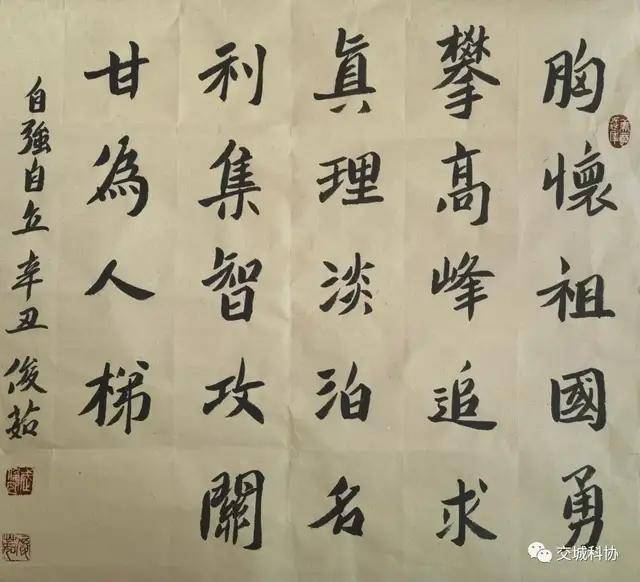 胸懷祖國勇
攀高峰追求
真理淡泊名
利集智攻關
甘為人梯
自強自立辛丑俊茹
交城科协